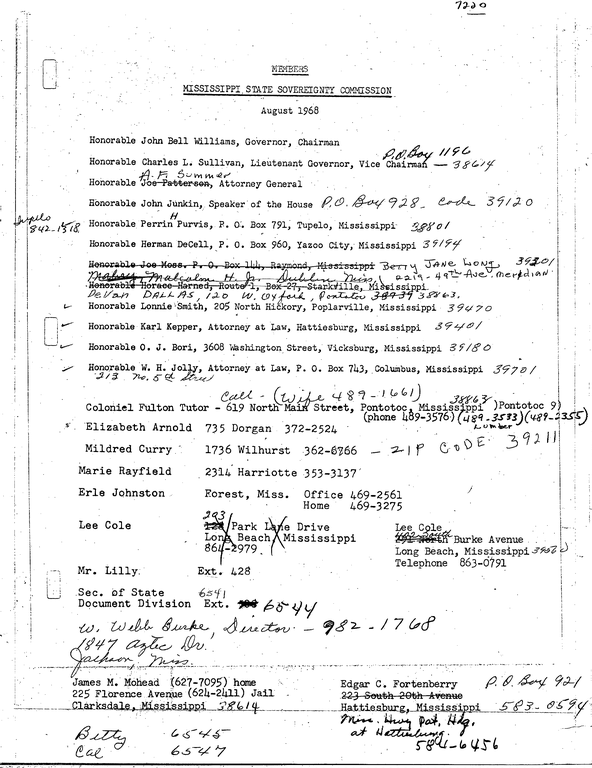 7220
MEMBERS
MISSISSIPPI STATE SOVEREIGNTY COMMISSION
August 1968
Honorable John Bell Williams, Governor, Chairman
P.O. Box 1196
Honorable Charles L. Sullivan, Lieutenant Governor, Vice Chairman — 38614
A. F. Summer
Honorable Joe Patterson, Attorney General
Honorable John Junkin, Speaker of the House P.O. Box 928 - Code 39120
Tupelo
842-1518
H
Honorable Perrin Purvis, P. O. Box 791, Tupelo, Mississippi 38801
Honorable Herman DeCell, P. O. Box 960, Yazoo City, Mississippi 39194
Honorable Joe Moss, P. O. Box 144, Raymond, Mississippi Betty Jane Long, 39301
Mabry, Malcolm H. Jr. Dublin, Miss. 2219 - 49th Ave Meridian
Honorable Horace Harned, Route 1, Box 27, Starkville, Mississippi
DeVan Dallas, 120 W. Oxford, Pontotoc 38863
Honorable Lonnie Smith, 205 North Hickory, Poplarville, Mississippi 39470
Honorable Karl Kepper, Attorney at Law, Hattiesburg, Mississippi 39401
Honorable O. J. Bori, 3608 Washington Street, Vicksburg, Mississippi 39180
Honorable W. H. Jolly, Attorney at Law, P. O. Box 743, Columbus, Mississippi 39701
213 No. 5th Street
Call - (Wife 489-1661)
38863
Coloniel Fulton Tutor - 619 North Main Street, Pontotoc, Mississippi )Pontotoc 9)
(phone 489-3576) (489-3533) (489-2355)
Lumber
Elizabeth Arnold 735 Dorgan 372-2524
Mildred Curry 1736 Wilhurst 362-6866 — ZIP CODE 39211
Marie Rayfield 2314 Harriotte 353-3137
Erle Johnston Forest, Miss. Office 469-2561
Home 469-3275
293
Lee Cole 128 Park Lane Drive
Long Beach, Mississippi
864-2979
Lee Cole
North Burke Avenue
Long Beach, Mississippi 39560
Telephone 863-0791
Mr. Lilly Ext. 428
Sec. of State 6541
Document Division Ext. 6544
W. Webb Burke, Director - 982-1768
1847 Aztec Dr.
Jackson, Miss.
James M. Mohead (627-7095) home
225 Florence Avenue (624-2411) Jail
Clarksdale, Mississippi 38614
Edgar C. Fortenberry P.O. Box 921
223 South 20th Avenue
Hattiesburg, Mississippi 583-0594
Miss. Hwy Pat. Hdq.
at Hattiesburg.
584-6456
Betty 6545
Cal 6547